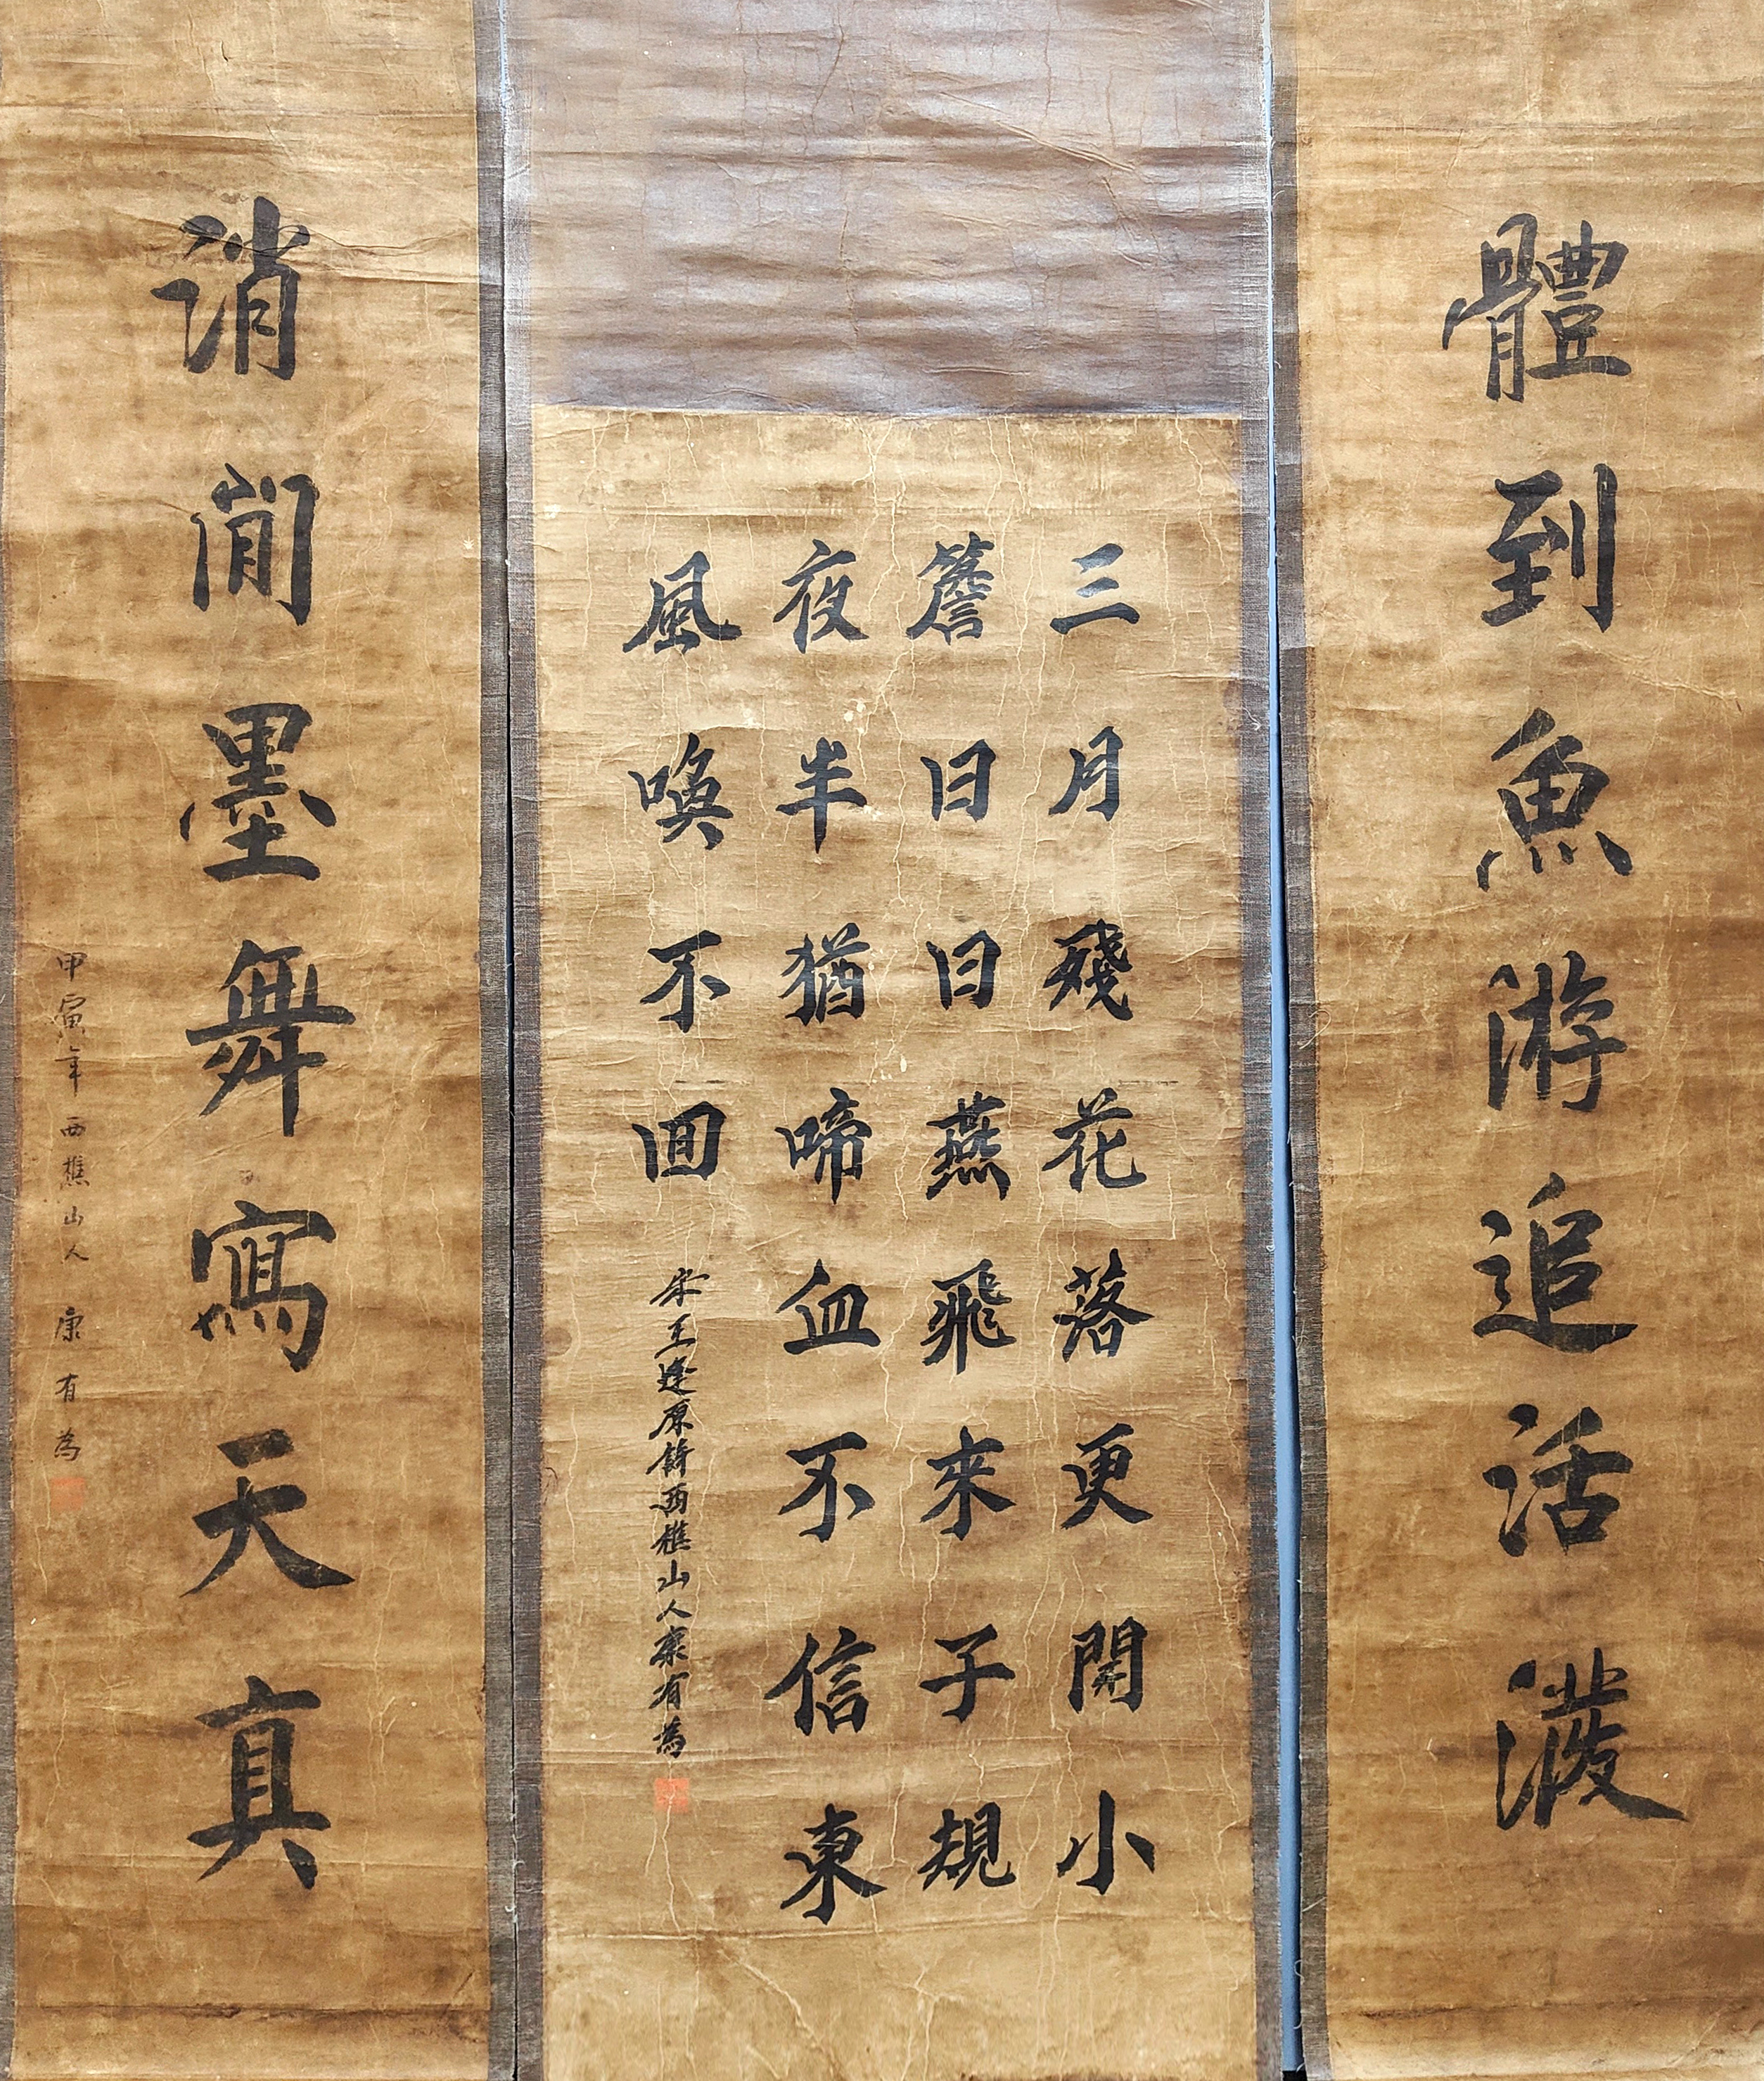 體到魚游追活潑
三月殘花落更開小
簷日日燕飛來子規
夜半猶啼血不信東
風喚不回
宋王逢原詩西樵山人康有為
消閒墨舞寫天真
甲寅年西樵山人康有為